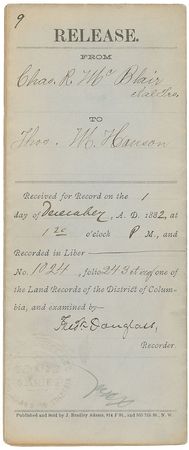 9
RELEASE.
FROM
Chas. R. Mc Blair
et al Trs.
TO
Thos. M. Hanson
Received for Record on the 1
day of December, A. D. 1882, at
1 20 o'clock P M., and
Recorded in Liber
No. 1024, folio 243 et seq one of
the Land Records of the District of Colum-
bia, and examined by
Fredk Douglass,
Recorder.
Published and Sold by J. Bradley Adams,